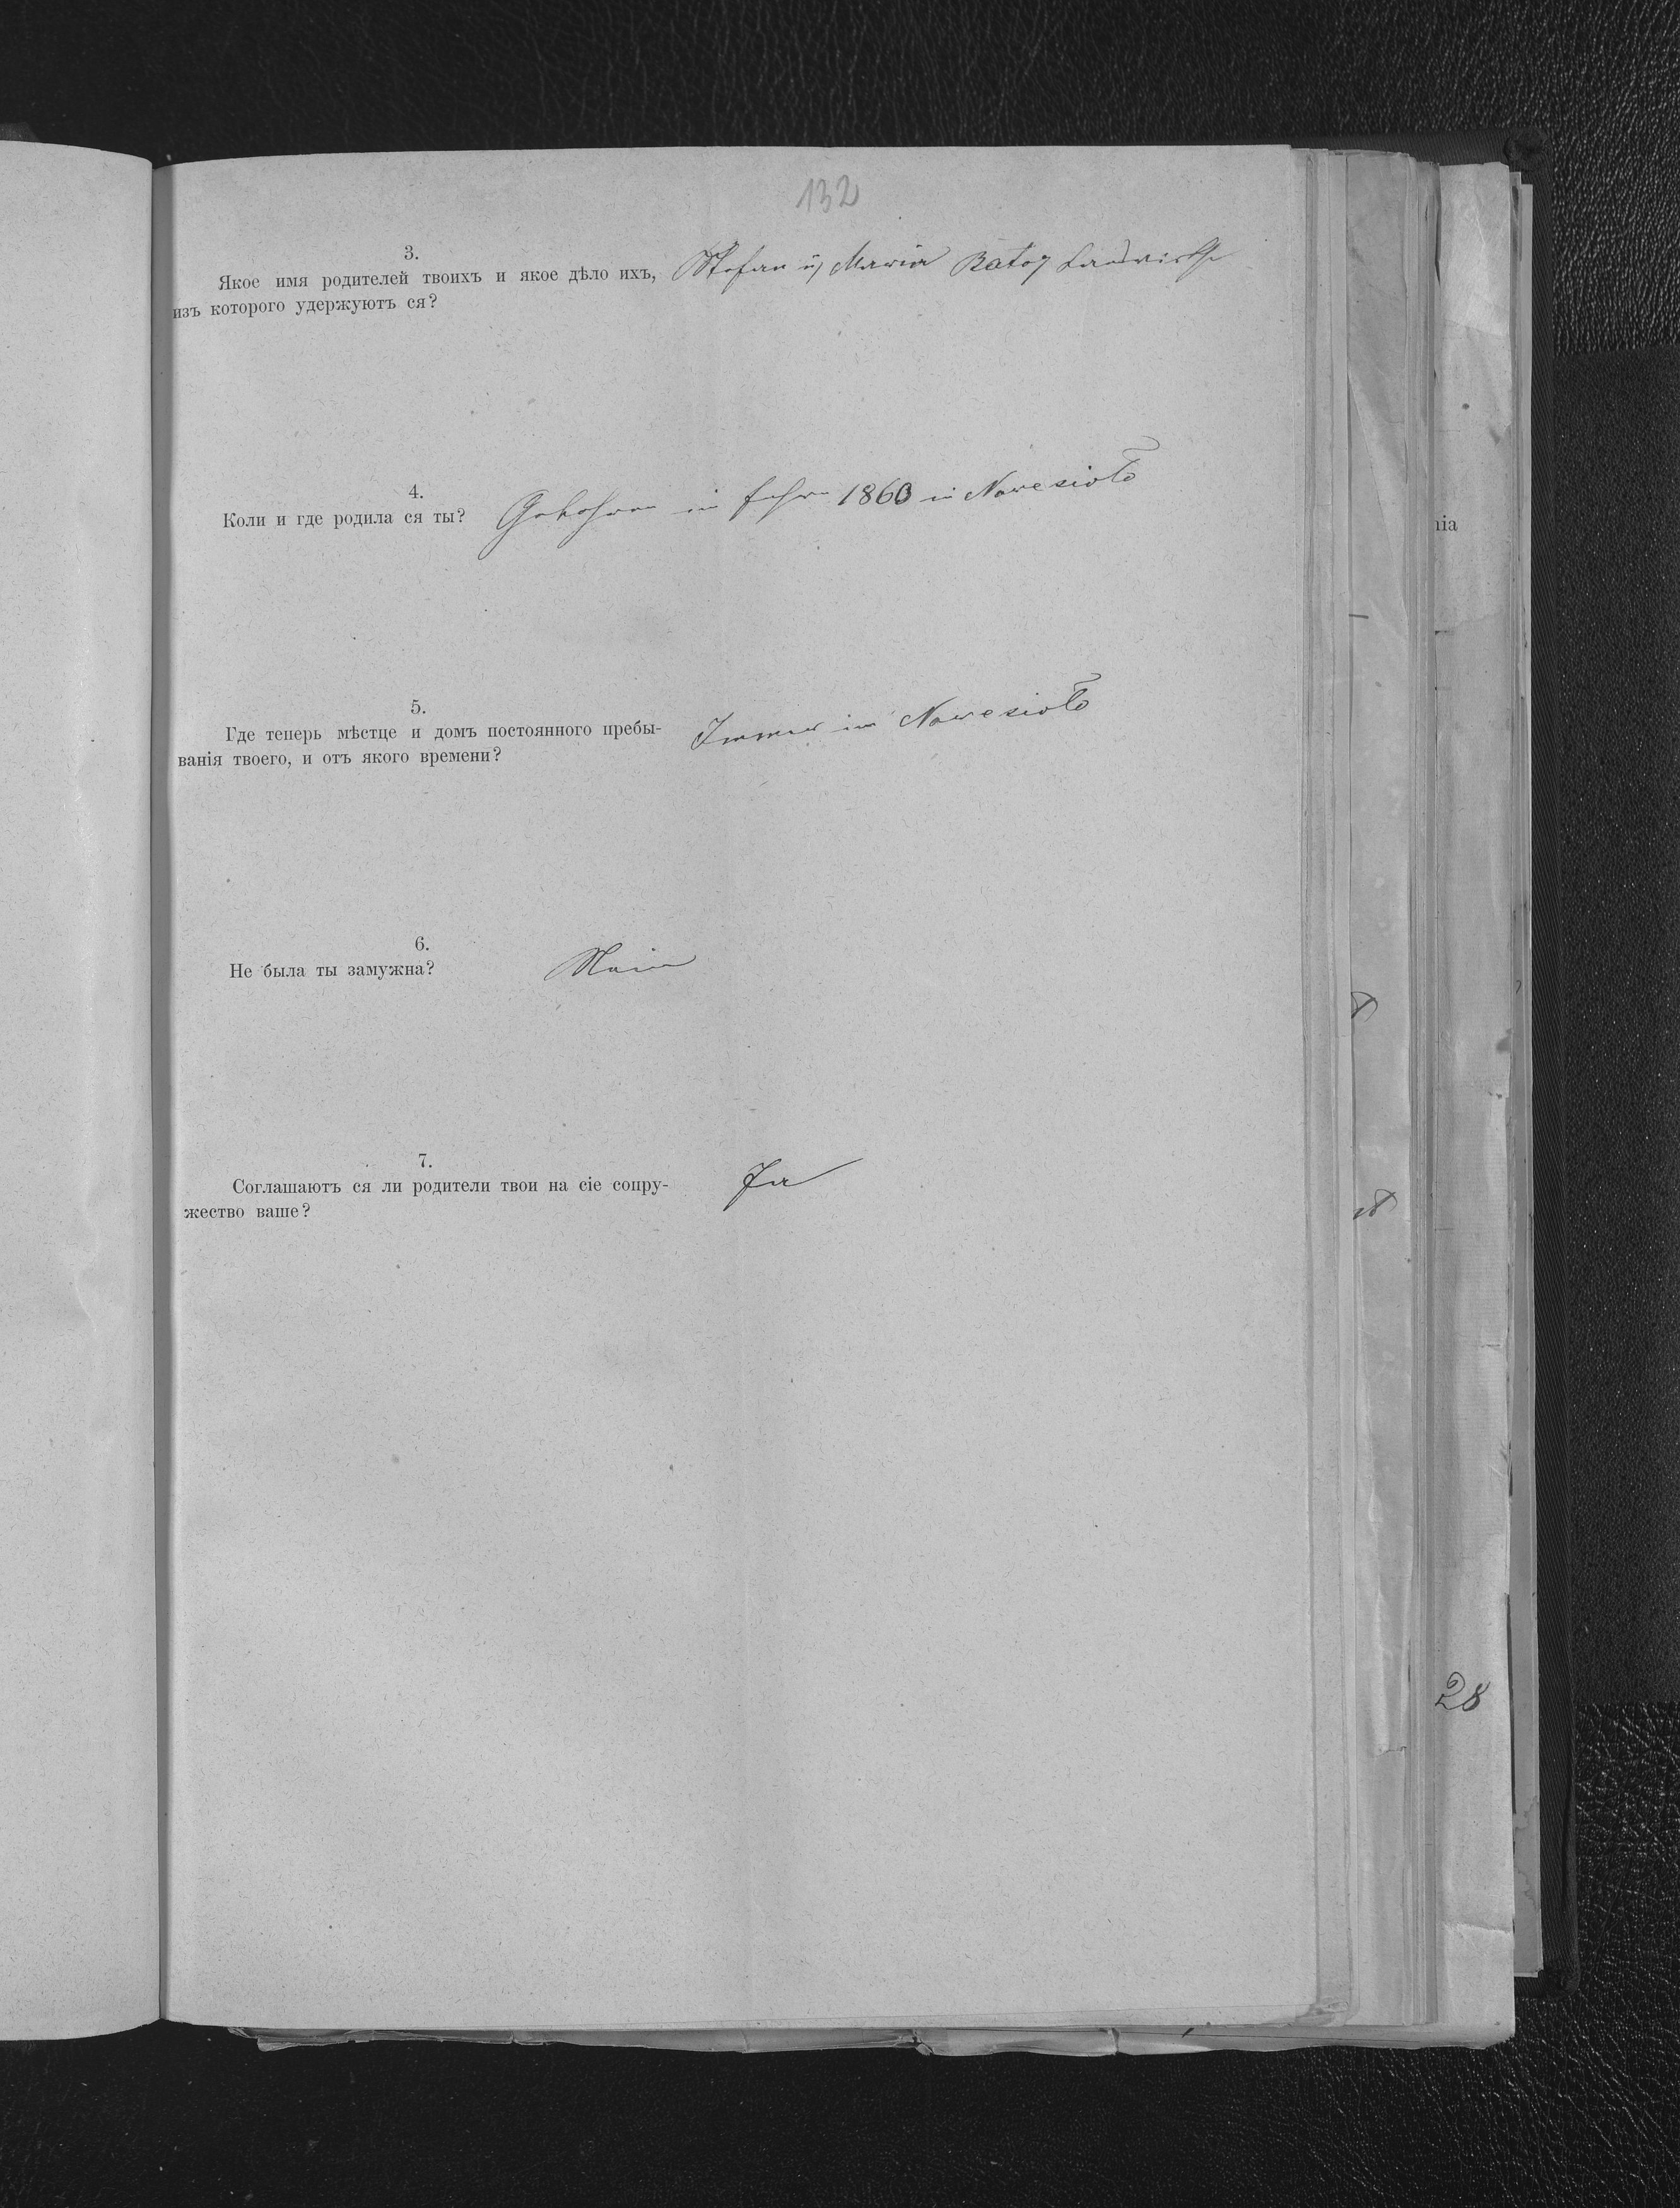 132
3.
Якое имя родителей твоихъ и якое дѣло ихъ, Stefan u Maria Batog Landwirthe
изъ которого удержуютъ ся?
4.
Коли и где родила ся ты? Gebohren im Jahre 1860 in Nowesioło
5.
Где теперь мѣстце и домъ постоянного пребы- Immer in Nowesioło
ванія твоего, и отъ якого времени?
6.
Не была ты замужна? Nein
7.
Соглашаютъ ся ли родители твои на сіе сопру- Ja
жество ваше?
nia
28